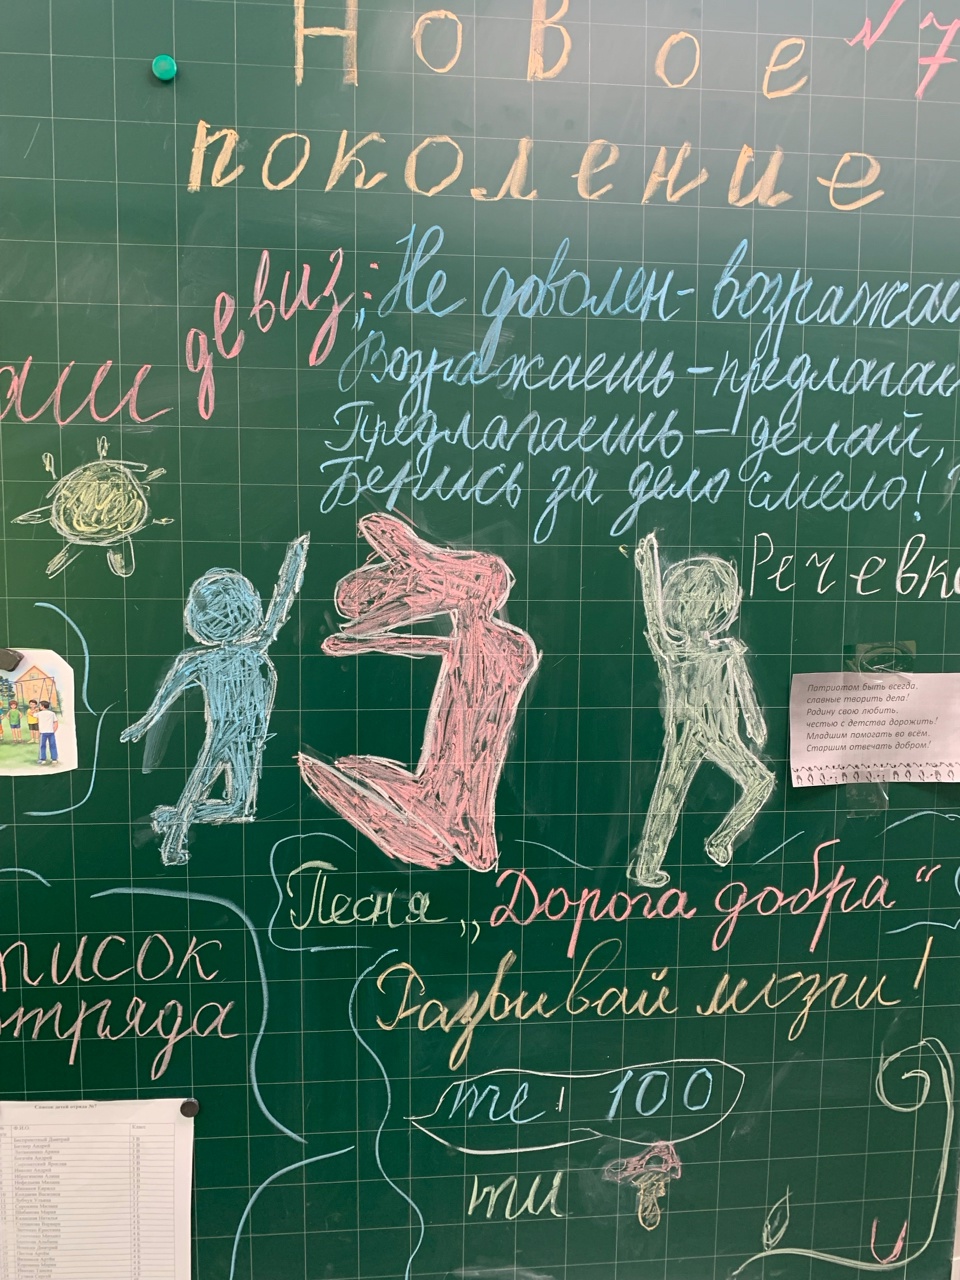 Новое №7
поколение
наш девиз:
„Не доволен- возражае
Возражаешь-предлагае
Предлагаешь- делай,
Берись за дело смело!"
Речевк
Патриотом быть всегда,
славные творить дела!
Родину свою любить,
честью с детства дорожить!
Младшим помогать во всём.
Старшим отвечать добром!
Песня „Дорога добра“
писок
отряда
Развивай мозги!
те 100
ти
Список детей отряда №7
Класс